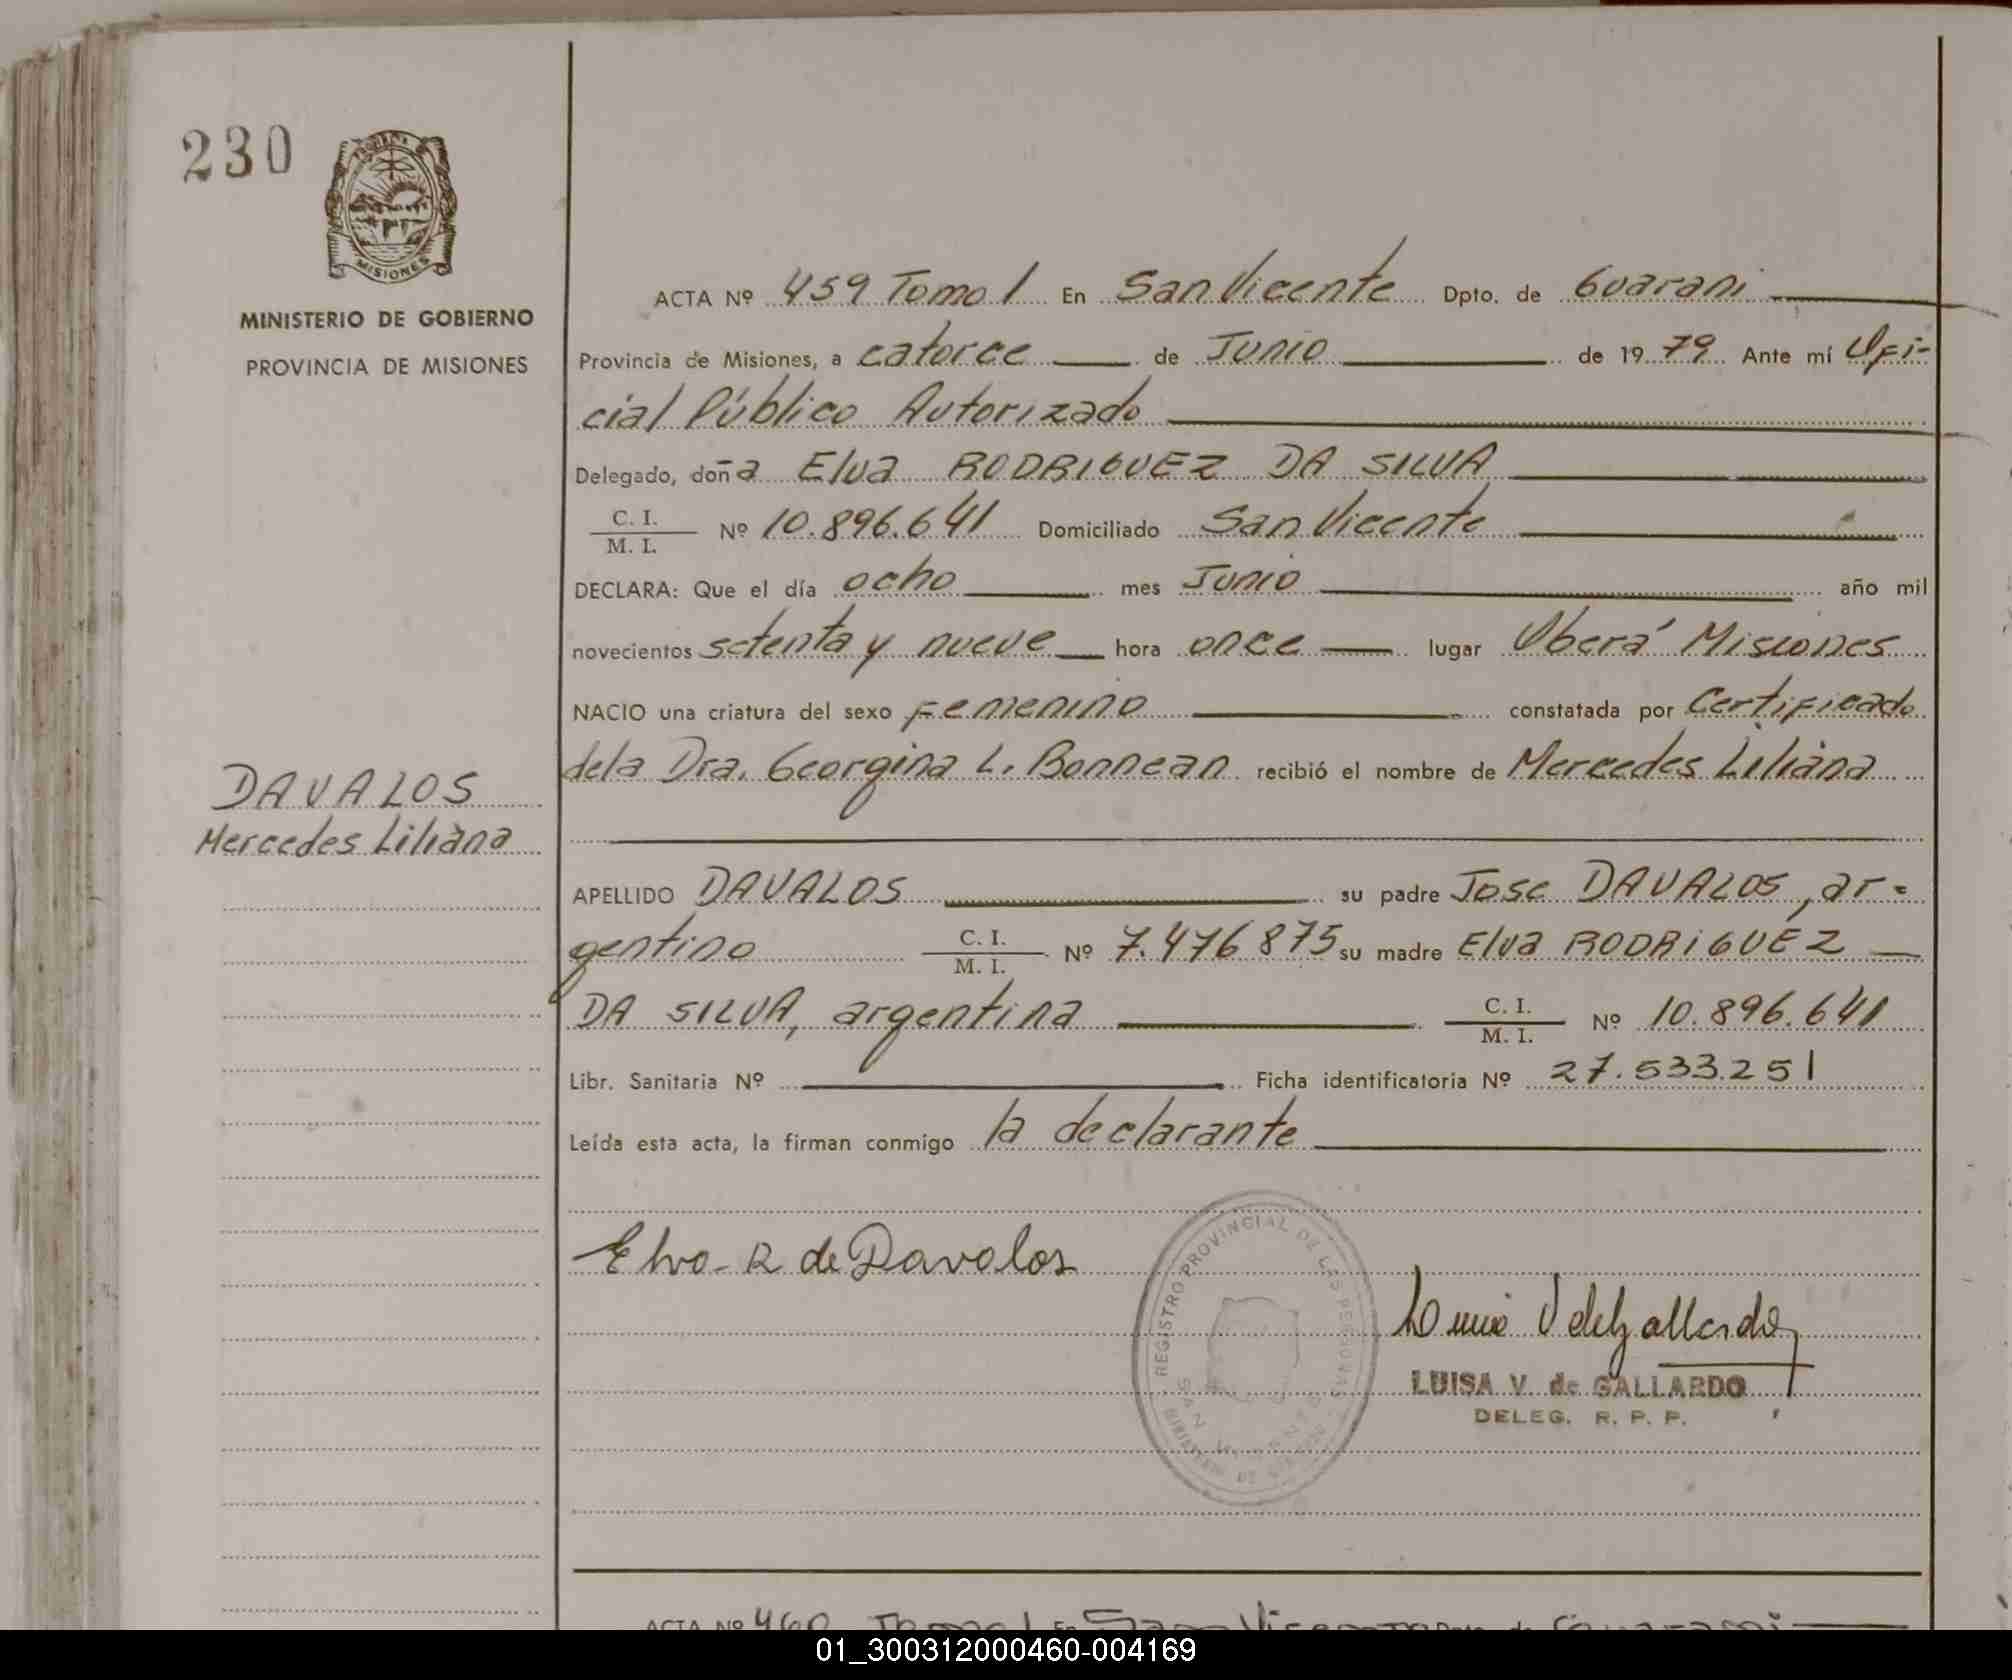 230
PROVINCIA
MISIONES
MINISTERIO DE GOBIERNO
PROVINCIA DE MISIONES
DAVALOS
Mercedes Liliana
ACTA Nº 459 Tomo I En San Vicente Dpto. de Guarani
Provincia de Misiones, a catorce de Junio de 1979 Ante mí Ofi-
cial Público Autorizado
Delegado, doña Elva RODRIGUEZ DA SILVA
C. I.
M. I. Nº 10.896.641 Domiciliado San Vicente
DECLARA: Que el día ocho mes Junio año mil
novecientos setenta y nueve hora once lugar Oberá Misiones
NACIO una criatura del sexo Femenino constatada por Certificado
dela Dra. Georgina L. Bonnean recibió el nombre de Mercedes Liliana
APELLIDO DAVALOS su padre Jose DAVALOS, ar-
gentino C. I. M. I. Nº 7.476875 su madre Elva RODRIGUEZ
DA SILVA, argentina C. I. M. I. Nº 10.896.641
Libr. Sanitaria Nº Ficha identificatoria Nº 27.533.251
Leída esta acta, la firman conmigo la declarante
Elva R de Davalos
REGISTRO PROVINCIAL DE LAS PERSONAS
SAN VICENTE
MINISTERIO DE GOBIERNO
Luisa V de Gallardo
LUISA V. de GALLARDO
DELEG. R. P. P.
ACTA Nº 460 Tomo I En San Vicente Dpto. de Guarani
01_300312000460-004169